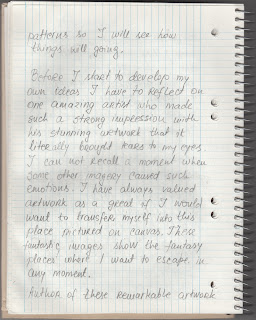 patterns so I will see how
things will going.
Before I start to develop my
own ideas I have to reflect on
one amazing artist who made
such a strong impression with
his stunning artwork that it
literally brought tears to my eyes
I can not recall a moment when
some other imagery caused such
emotions. I have always valued
artwork as a great if I would
want to transfers myself into this
place pictured on canvas. These
fantastic images show the fantasy
places where I want to escape in
any moment.
Author of these remarkable artwork